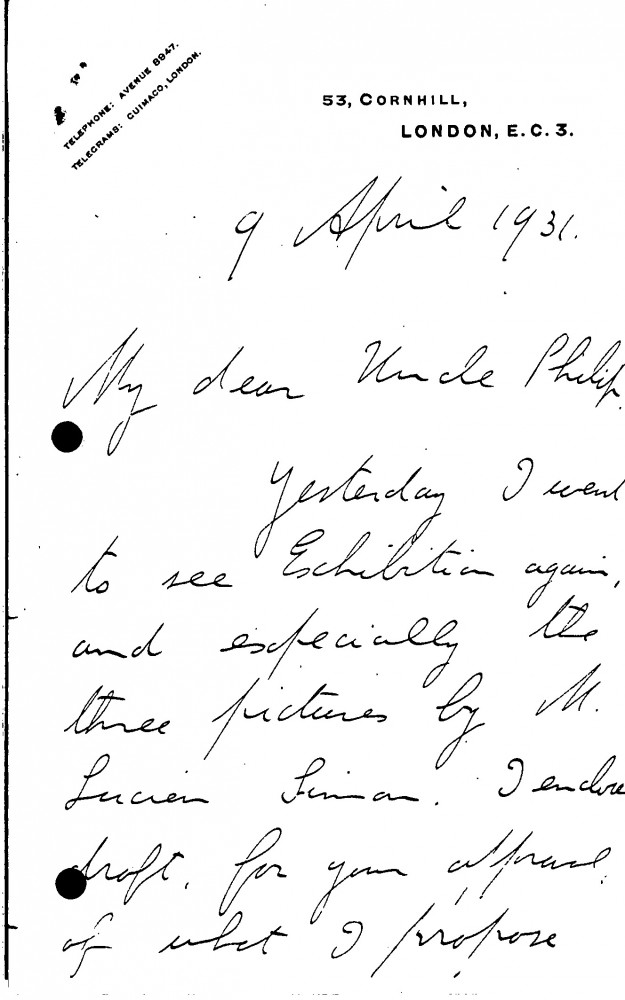 TELEPHONE: AVENUE 8947.
TELEGRAMS: CUIMACO, LONDON.
53, CORNHILL,
LONDON, E.C.3.
9 April 1931.
My dear Uncle Philip,
Yesterday I went
to see Exhibition again,
and especially the
three pictures by M.
Lucien Simon. I enclose
draft, for your approval,
of what I propose